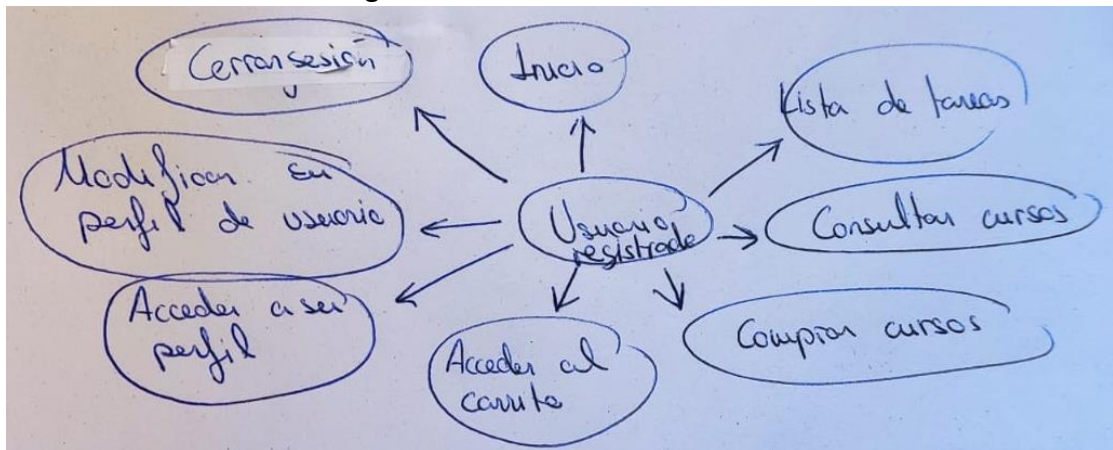 Cerrar sesión
Inicio
Lista de tareas
Modificar su
perfil de usuario
Usuario
registrado
Consultar cursos
Acceder a su
perfil
Acceder al
carrito
Comprar cursos